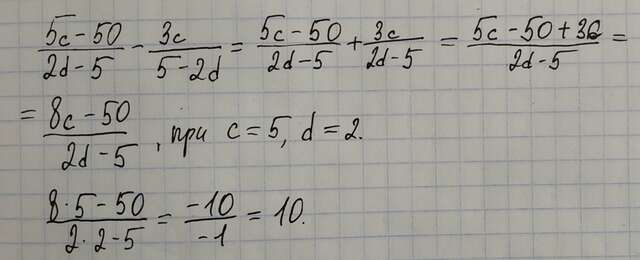 (5c-50)/(2d-5) - 3c/(5-2d) = (5c-50)/(2d-5) + 3c/(2d-5) = (5c-50+3c)/(2d-5) =
= (8c-50)/(2d-5), при c=5, d=2.
(8·5-50)/(2·2-5) = -10/-1 = 10.